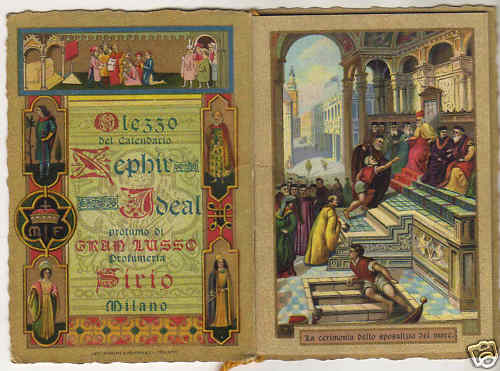 Olezzo
del Calendario
Zephir
Ideal
profumo di
GRAN LUSSO
Profumeria
Sirio
Milano
M F
La cerimonia dello sposalizio del mare.
ebY